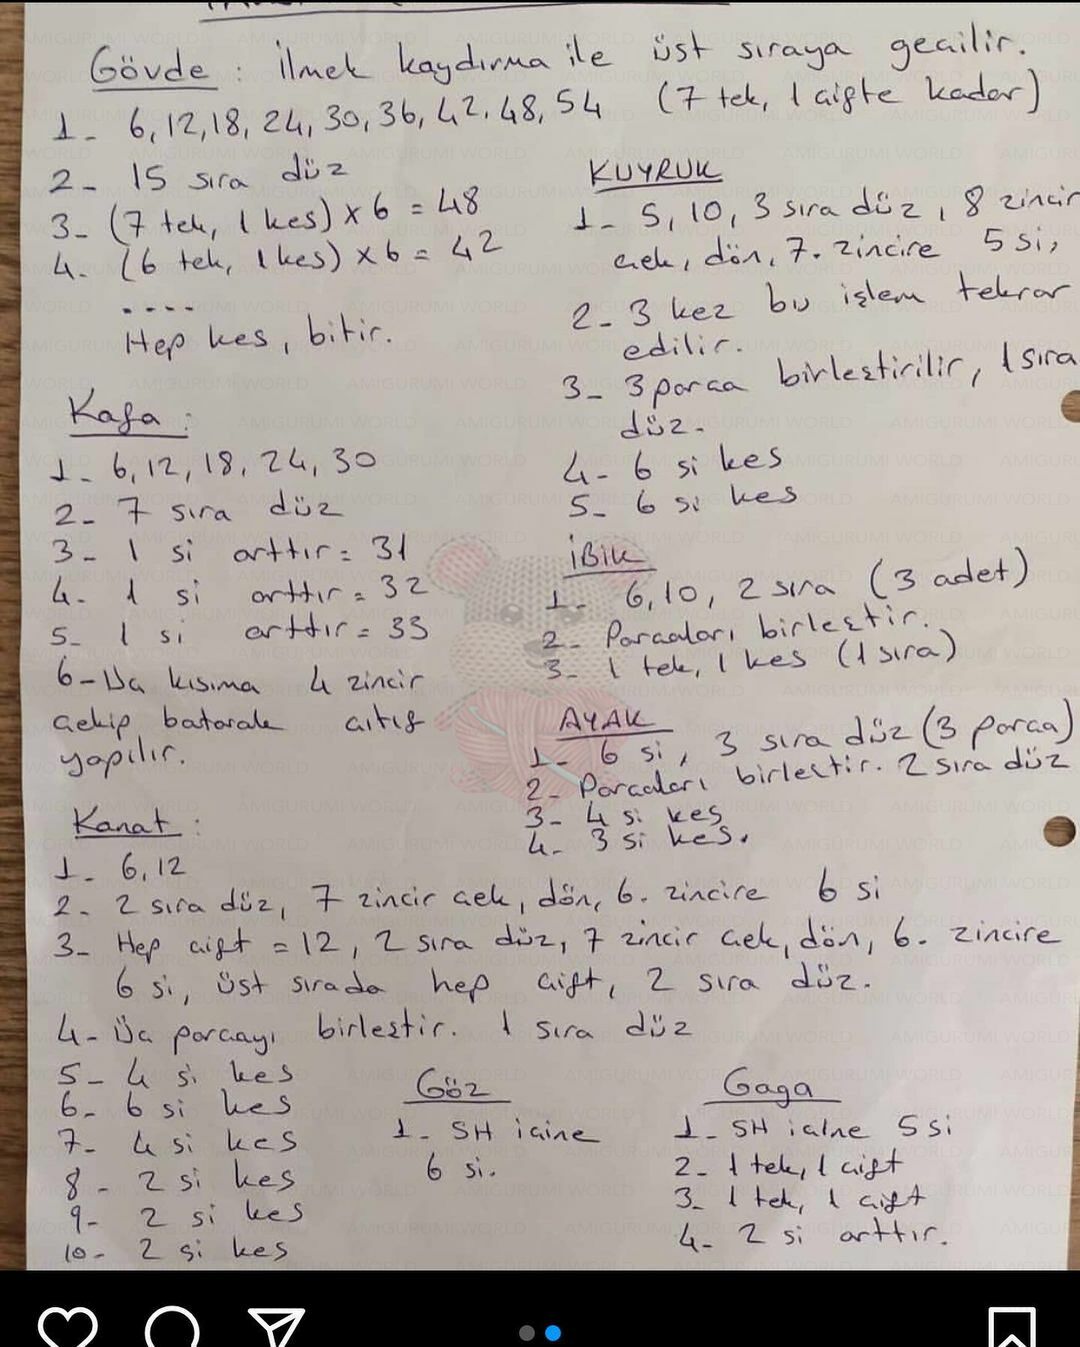 Gövde : İlmek kaydırma ile üst sıraya geçilir.
1- 6, 12, 18, 24, 30, 36, 42, 48, 54 (7 tek, 1 çifte kadar)
2- 15 sıra düz
3- (7 tek, 1 kes) x 6 = 48
4- (6 tek, 1 kes) x 6 = 42
....
Hep kes, bitir.
KUYRUK
1- 5, 10, 3 sıra düz, 8 zincir
çek, dön, 7. zincire 5 si,
2- 3 kez bu işlem tekrar
edilir.
3- 3 parça birleştirilir, 1 sıra
düz.
4- 6 si kes
5- 6 si kes
Kafa :
1- 6, 12, 18, 24, 30
2- 7 sıra düz
3- 1 si arttır = 31
4- 1 si arttır = 32
5- 1 si arttır = 33
6- Uç kısıma 4 zincir
çekip batarak çıtıf
yapılır.
İBİK
1- 6, 10, 2 sıra (3 adet)
2- Parçaları birleştir.
3- 1 tek, 1 kes (1 sıra)
AYAK
1- 6 si, 3 sıra düz (3 parça)
2- Parçaları birleştir. 2 sıra düz
3- 4 si kes
4- 3 si kes.
Kanat :
1- 6, 12
2- 2 sıra düz, 7 zincir çek, dön, 6. zincire 6 si
3- Hep çift = 12, 2 sıra düz, 7 zincir çek, dön, 6. zincire
6 si, üst sırada hep çift, 2 sıra düz.
4- Üç parçayı birleştir. 1 sıra düz
5- 4 si kes
6- 6 si kes
7- 4 si kes
8- 2 si kes
9- 2 si kes
10- 2 si kes
Göz
1- SH içine
6 si.
Gaga
1- SH içine 5 si
2- 1 tek, 1 çift
3- 1 tek, 1 çift
4- 2 si arttır.
AMIGURUMI WORLD